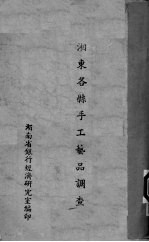 湘東各縣手工藝品調查
湖南省銀行經濟研究室編印